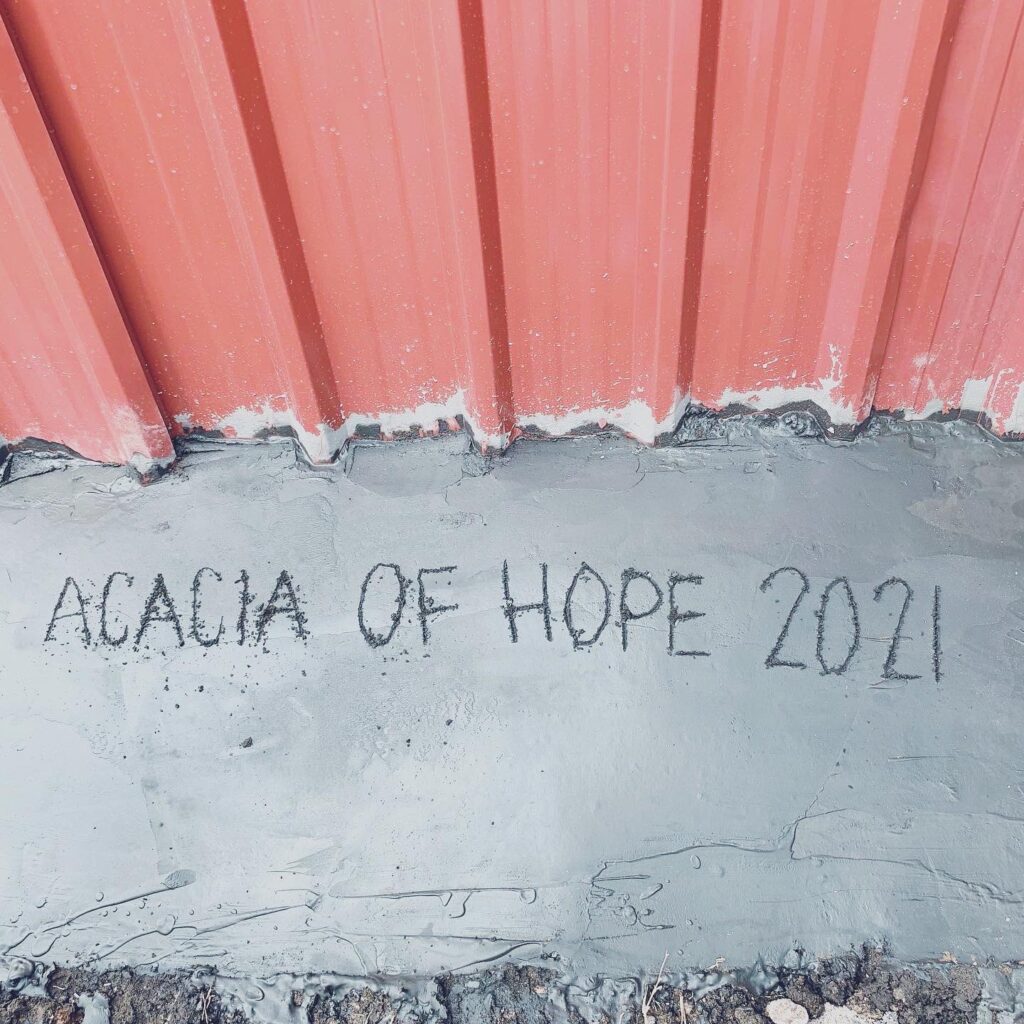 ACACIA OF HOPE 2021